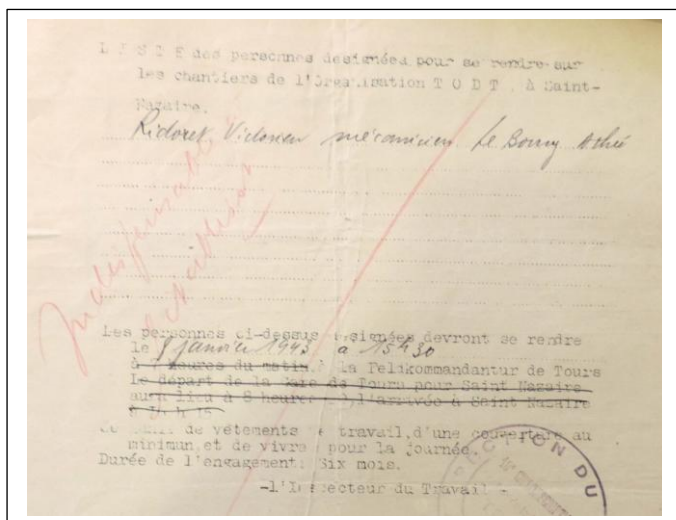 LISTE des personnes designées pour se rendre sur
les chantiers de l'Organisation T O D T , à Saint-
Nazaire.
Ridoret Victorien mécanicien Le Bourg Athée
Indispensable
Les personnes ci-dessus désignées devront se rendre
le janvier 1943 à 15h30
à 7 heures du matin à la Feldkommandantur de Tours
Le départ de la Gare de Tours pour Saint Nazaire
aura lieu à 8 heures à l'arrivée à Saint Nazaire
à
de vêtements de travail,d'une couverture au
minimun,et de vivres pour la journée.
Durée de l'engagement: Six mois.
-l'Inspecteur du Travail -
CTION DU